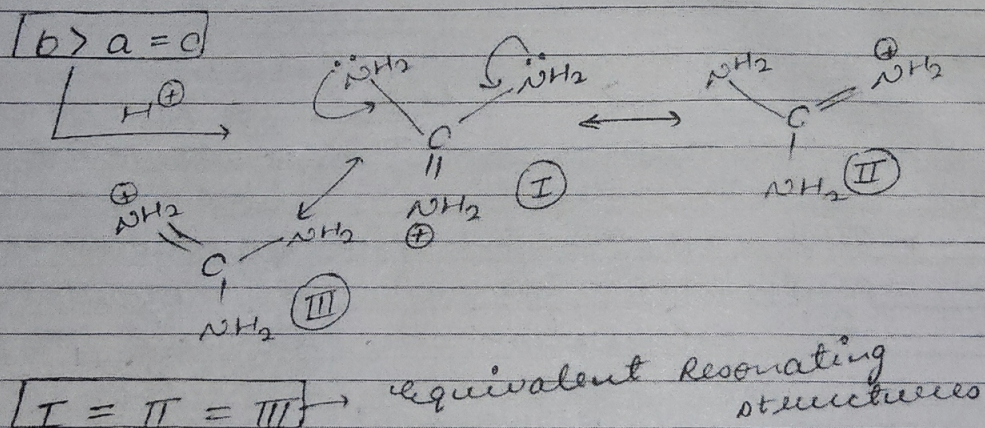 b > a = c
N̈H2 N̈H2 NH2 ⊕NH2
H⊕ C ⟷ C
⊕NH2 NH2 ⊕ I NH2 II
NH2
C
III
NH2
I = II = III → equivalent Resonating
structures